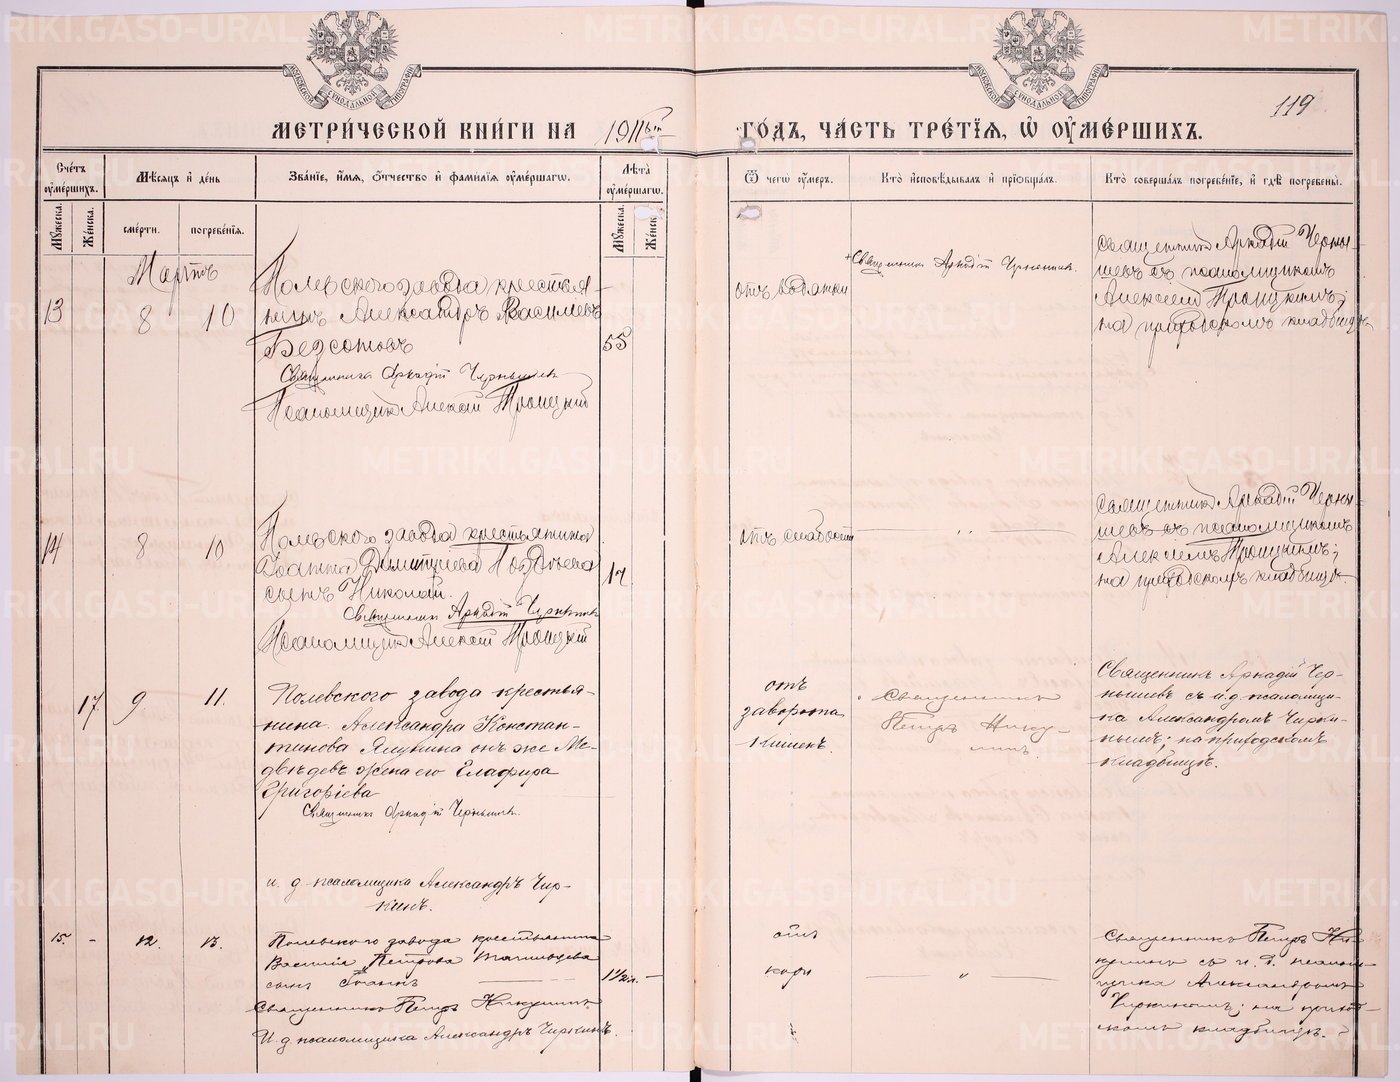 МЕТРИ́ЧЕСКОЙ КНИ́ГИ НА 1911ый ГО́ДЪ, ЧА́СТЬ ТРЕ́ТIѦ, Ѡ ОУМЕ́РШИХЪ.
119
Сче́тъ оуме́ршихъ.
Мѣ́сяцъ и де́нь
Зва́нїе, и́мя, ѻ́тчество и фами́лїя оуме́ршагѡ.
Лѣ́та оуме́ршагѡ.
Ѿ чегѡ̀ оу́меръ.
Кто̀ и́сповѣ́дывалъ и прїѡбща́лъ.
Кто̀ соверша́лъ погребе́нїе, и гдѣ̀ погребены̀.
Му́жеска.
Же́нска.
сме́рти.
погребе́нїя.
Му́жеска.
Же́нск
Мартъ
13
8
10
Полевского завода крестья-
нинъ Александръ Васильевъ
Безсоновъ
55
Священникъ Аркадій Чернышевъ
Псаломщикъ Алексій Троицкій
отъ водянки
Священникъ Аркадій Чернышевъ
священникъ Аркадій Черны-
шевъ съ псаломщикомъ
Алексіемъ Троицкимъ;
на приходскомъ кладбищѣ
14
8
10
Полевского завода крестьянина
Іоанна Димитріева
сынъ Николай.
17
Священникъ Аркадій Чернышевъ
Псаломщикъ Алексій Троицкій
отъ слабости
"
священникъ Аркадій Черны-
шевъ съ псаломщикомъ
Алексіемъ Троицкимъ;
на приходскомъ кладбищѣ.
17
9.
11.
Полевского завода крестья-
нина Александра Констан-
тинова Ялунина онъ же Ме-
двѣдевъ жена его Глафира
Григоріева
Священникъ Аркадій Чернышевъ.
и. д. псаломщика Александръ Чир-
кинъ.
отъ
заворота
кишекъ.
Священникъ
Петръ Нику-
линъ
Священникъ Аркадій Чер-
нышевъ съ и. д. псаломщи-
ка Александромъ Чирки-
нымъ; на приходскомъ
кладбищѣ.
15.
-
12.
13.
Полевского завода крестьянина
Василія Петрова
сынъ Іоаннъ
1 1/2 л. -
Священникъ Петръ Никулинъ
И. д. псаломщика Александръ Чиркинъ.
отъ
кори
"
Священникъ Петръ Ни-
кулинъ съ и. д. псалом-
щика Александромъ
Чиркинымъ; на приход-
скомъ кладбищѣ.
METRIKI.GASO-URAL.RU